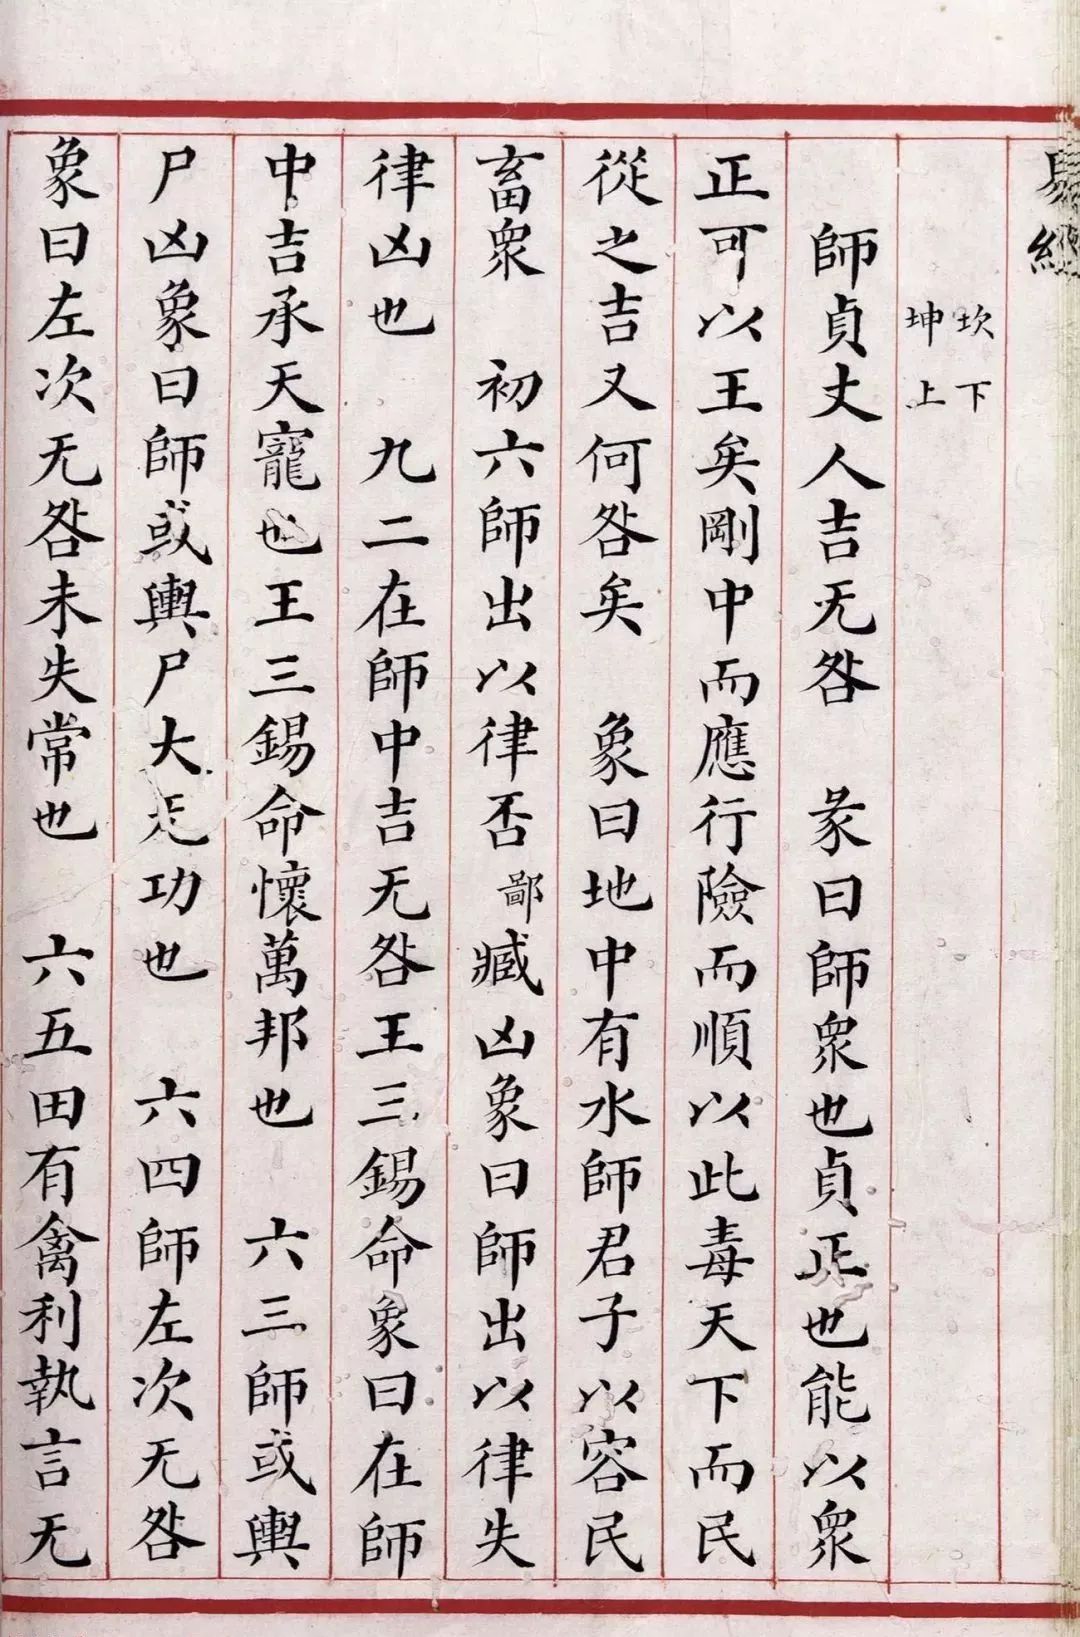 易經
坎下
坤上
師貞丈人吉无咎　彖曰師眾也貞正也能以眾
正可以王矣剛中而應行險而順以此毒天下而民
從之吉又何咎矣　象曰地中有水師君子以容民
畜眾　初六師出以律否鄙臧凶象曰師出以律失
律凶也　九二在師中吉无咎王三錫命象曰在師
中吉承天寵也王三錫命懷萬邦也　六三師或輿
尸凶象曰師或輿尸大无功也　六四師左次无咎
象曰左次无咎未失常也　六五田有禽利執言无